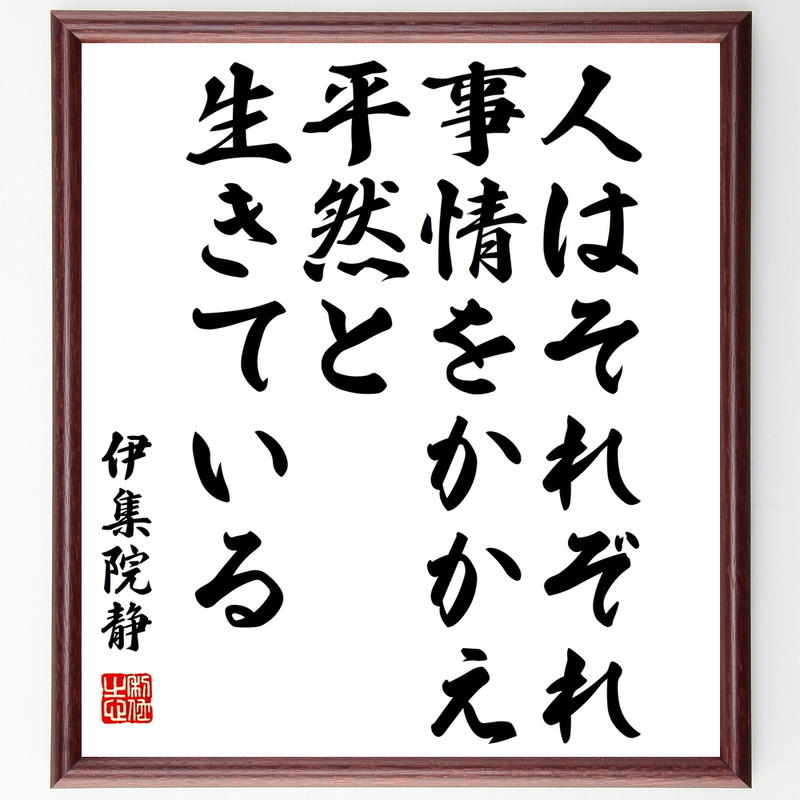 人はそれぞれ
事情をかかえ
平然と
生きている
伊集院静